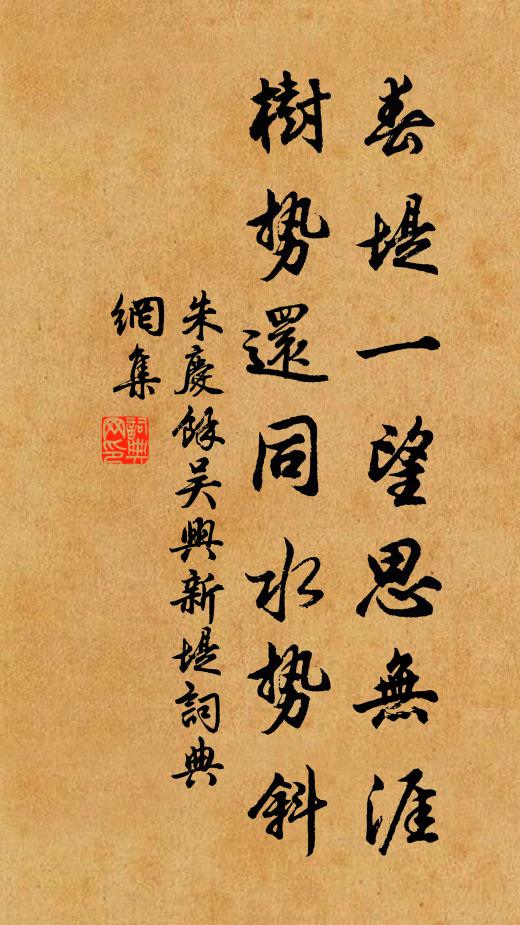 春堤一望思無涯
樹势還同水势斜
朱慶餘吴興新堤詞典
網集
詞典
网印